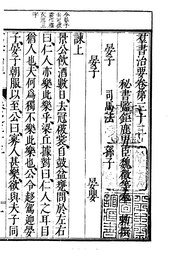 群書治要卷第三十三
秘書監鉅鹿男臣魏徵等奉 勅撰
晏子 司馬法 孫子
晏子 晏嬰
諫上
景公飲酒數日去冠被裳自鼓盆甕問於左右
曰仁人亦樂此樂乎梁丘據對曰仁人之耳目
猶人也夫何為獨不樂此樂也公令趨駕迎晏
子晏子朝服以至公曰寡人甚樂欲與夫子同